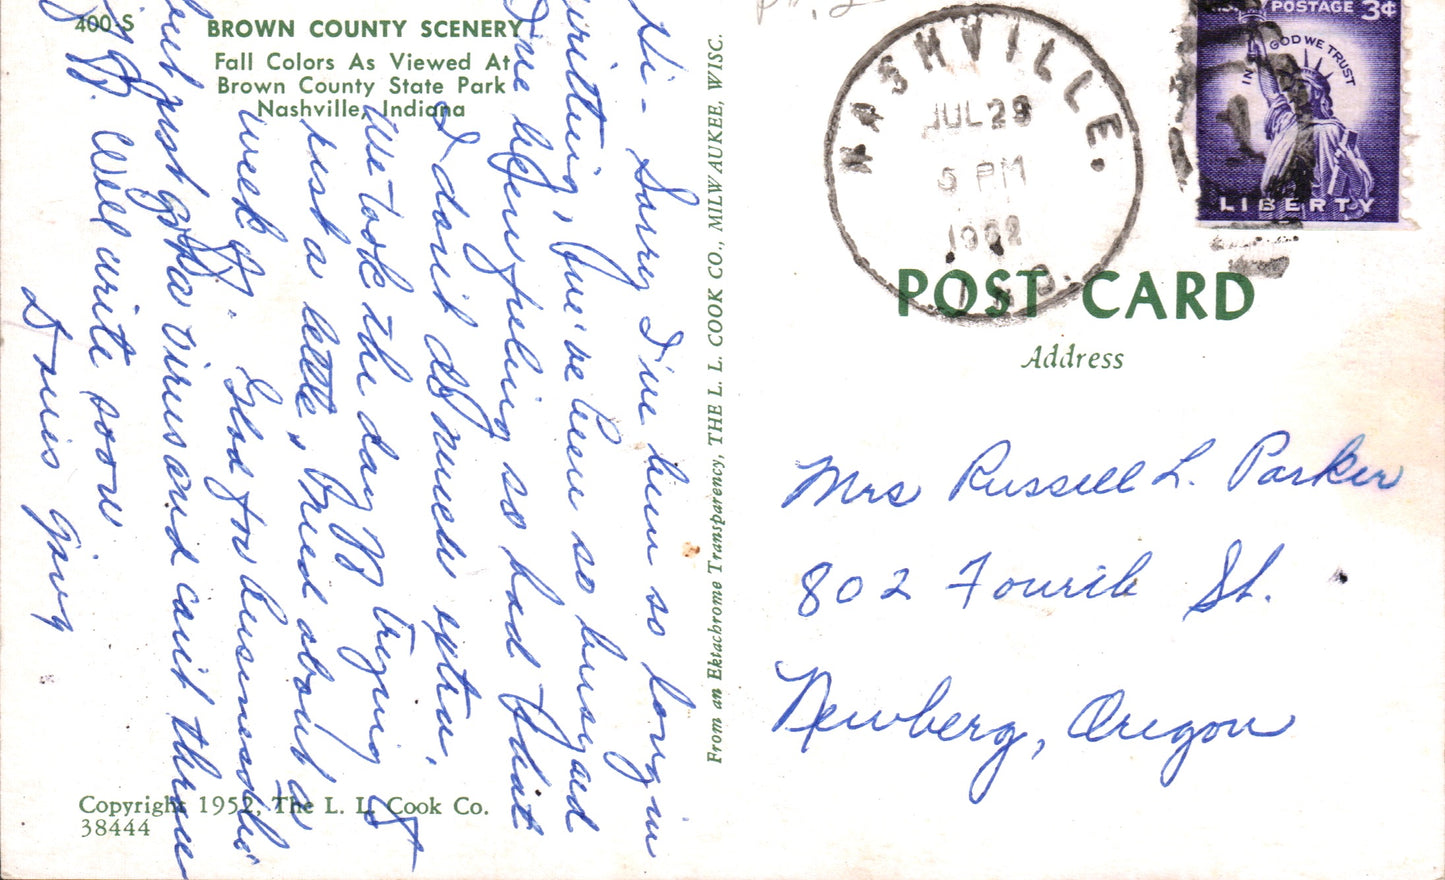 400-S
BROWN COUNTY SCENERY
Fall Colors As Viewed At
Brown County State Park
Nashville, Indiana
Hi - Sorry I've been so long in
writting, but I've been so busy and
I've been feeling so bad that
I don't do much extra.
We took the day off trying to
rest a little, tried about a
week off. Glad for business to be
but just got a virus and can't throw
it off. Will write soon
Doris
Copyright 1952, The L. L. Cook Co.
38444
From an Ektachrome Transparency, THE L. L. COOK CO., MILWAUKEE, WISC.
NASHVILLE.
JUL 29
5 PM
IND.
POSTAGE 3¢
IN GOD WE TRUST
LIBERTY
POST CARD
Address
Mrs Russell L. Parker
802 Fourth St.
Newberg, Oregon